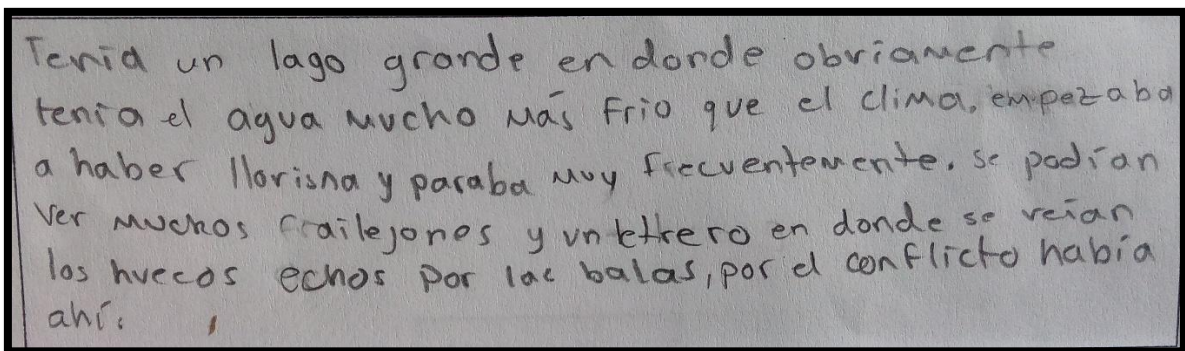 Tenía un lago grande en donde obviamente
tenía el agua mucho más frio que el clima, empezaba
a haber llorisna y paraba muy frecuentemente. se podían
ver muchos frailejones y un letrero en donde se veían
los huecos echos por las balas, por el conflicto había
ahí.